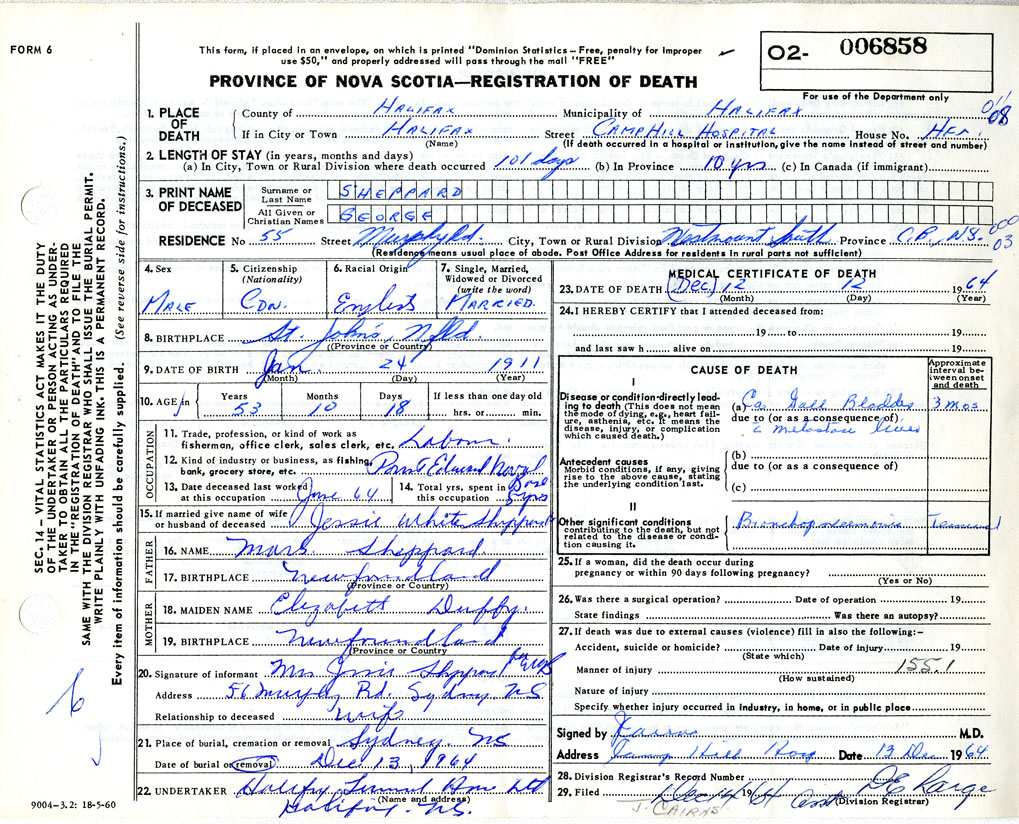 FORM 6
This form, if placed in an envelope, on which is printed "Dominion Statistics – Free, penalty for improper
use $50," and properly addressed will pass through the mail "FREE"
PROVINCE OF NOVA SCOTIA—REGISTRATION OF DEATH
O2- 006858
For use of the Department only
SEC. 14 – VITAL STATISTICS ACT MAKES IT THE DUTY
OF THE UNDERTAKER OR PERSON ACTING AS UNDER-
TAKER TO OBTAIN ALL THE PARTICULARS REQUIRED
IN THE "REGISTRATION OF DEATH" AND TO FILE THE
SAME WITH THE DIVISION REGISTRAR WHO SHALL ISSUE THE BURIAL PERMIT.
WRITE PLAINLY WITH UNFADING INK. THIS IS A PERMANENT RECORD.
Every item of information should be carefully supplied. (See reverse side for instructions.)
1. PLACE OF DEATH
County of HALIFAX Municipality of HALIFAX 08
If in City or Town HALIFAX Street CAMP HILL HOSPITAL House No. HFX.
(Name) (If death occurred in a hospital or institution, give the name instead of street and number)
2. LENGTH OF STAY (in years, months and days)
(a) In City, Town or Rural Division where death occurred 101 days (b) In Province 10 yrs (c) In Canada (if immigrant)
3. PRINT NAME OF DECEASED
Surname or Last Name SHEPPARD
All Given or Christian Names GEORGE
RESIDENCE No 55 Street Murphy Rd. City, Town or Rural Division Westmount South Province C.B., N.S. 03
(Residence means usual place of abode. Post Office Address for residents in rural parts not sufficient)
4. Sex
MALE
5. Citizenship (Nationality)
CDN.
6. Racial Origin
English
7. Single, Married, Widowed or Divorced (write the word)
MARRIED.
8. BIRTHPLACE St. John's, Nfld.
(Province or Country)
9. DATE OF BIRTH Jan. 24 1911
(Month) (Day) (Year)
10. AGE Years Months Days If less than one day old
53 10 18 hrs. or min.
OCCUPATION
11. Trade, profession, or kind of work as
fisherman, office clerk, sales clerk, etc. Labour.
12. Kind of industry or business, as fishing,
bank, grocery store, etc. Point Edward Naval Base
13. Date deceased last worked at this occupation June 64
14. Total yrs. spent in this occupation 5 yrs
15. If married give name of wife
or husband of deceased Jessie White Sheppard
FATHER
16. NAME Mark Sheppard
17. BIRTHPLACE Newfoundland
(Province or Country)
MOTHER
18. MAIDEN NAME Elizabeth Duffy.
19. BIRTHPLACE Newfoundland
(Province or Country)
20. Signature of informant Mrs Jessie Sheppard
Address 56 Murphy Rd. Sydney NS
Relationship to deceased wife
21. Place of burial, cremation or removal Sydney. NS
Date of burial or removal Dec 13, 1964
22. UNDERTAKER Halifax Funeral Home Ltd
(Name and address)
Halifax, NS.
9004–3.2: 18-5-60
MEDICAL CERTIFICATE OF DEATH
23. DATE OF DEATH (Dec) 12 12 1964
(Month) (Day) (Year)
24. I HEREBY CERTIFY that I attended deceased from:
19 to 19
and last saw h alive on 19
CAUSE OF DEATH
Approximate interval between onset and death
I
Disease or condition directly lead-
ing to death (This does not mean
the mode of dying, e.g., heart fail-
ure, asthenia, etc. It means the
disease, injury, or complication
which caused death.)
(a) Ca Gall Bladder 3 mos
due to (or as a consequence of)
c metastases liver
Antecedent causes
Morbid conditions, if any, giving
rise to the above cause, stating
the underlying condition last.
(b)
due to (or as a consequence of)
(c)
II
Other significant conditions
contributing to the death, but not
related to the disease or condi-
tion causing it.
Bronchopneumonia Terminal
25. If a woman, did the death occur during
pregnancy or within 90 days following pregnancy?
(Yes or No)
26. Was there a surgical operation? Date of operation 19
State findings Was there an autopsy?
27. If death was due to external causes (violence) fill in also the following:–
Accident, suicide or homicide? Date of injury 19
(State which)
Manner of injury 155.1
(How sustained)
Nature of injury
Specify whether injury occurred in industry, in home, or in public place
Signed by Cairns M.D.
Address Camp Hill Hosp Date 13 Dec 1964
28. Division Registrar's Record Number
29. Filed Dec 14 19
(Division Registrar)
J. CAIRNS